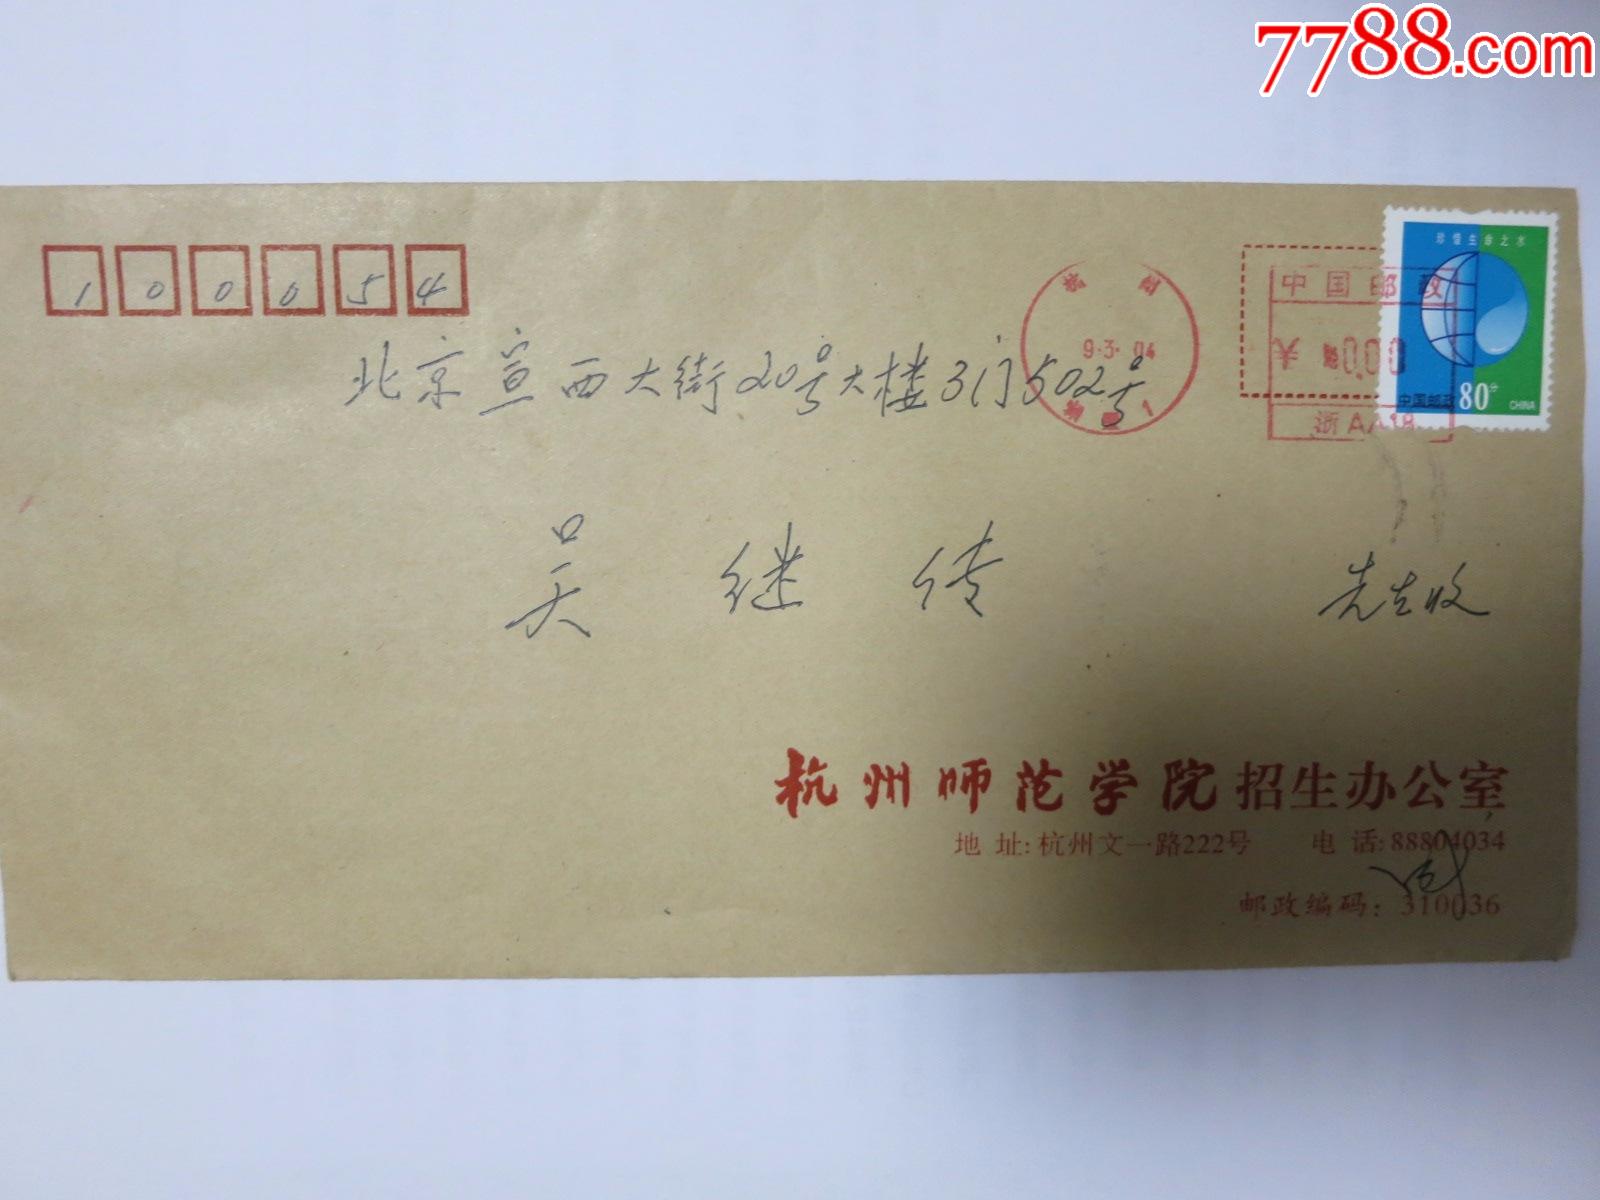 7788.com
珍惜生命之水
100054
杭州
中国邮政
9·3·04
¥ 0.00
北京宣西大街20号大楼3门502号
1
中国邮政 80分 CHINA
浙AA18
吴继传
先生收
杭州师范学院招生办公室
地 址:杭州文一路222号 电 话:88804034
邮政编码：310036